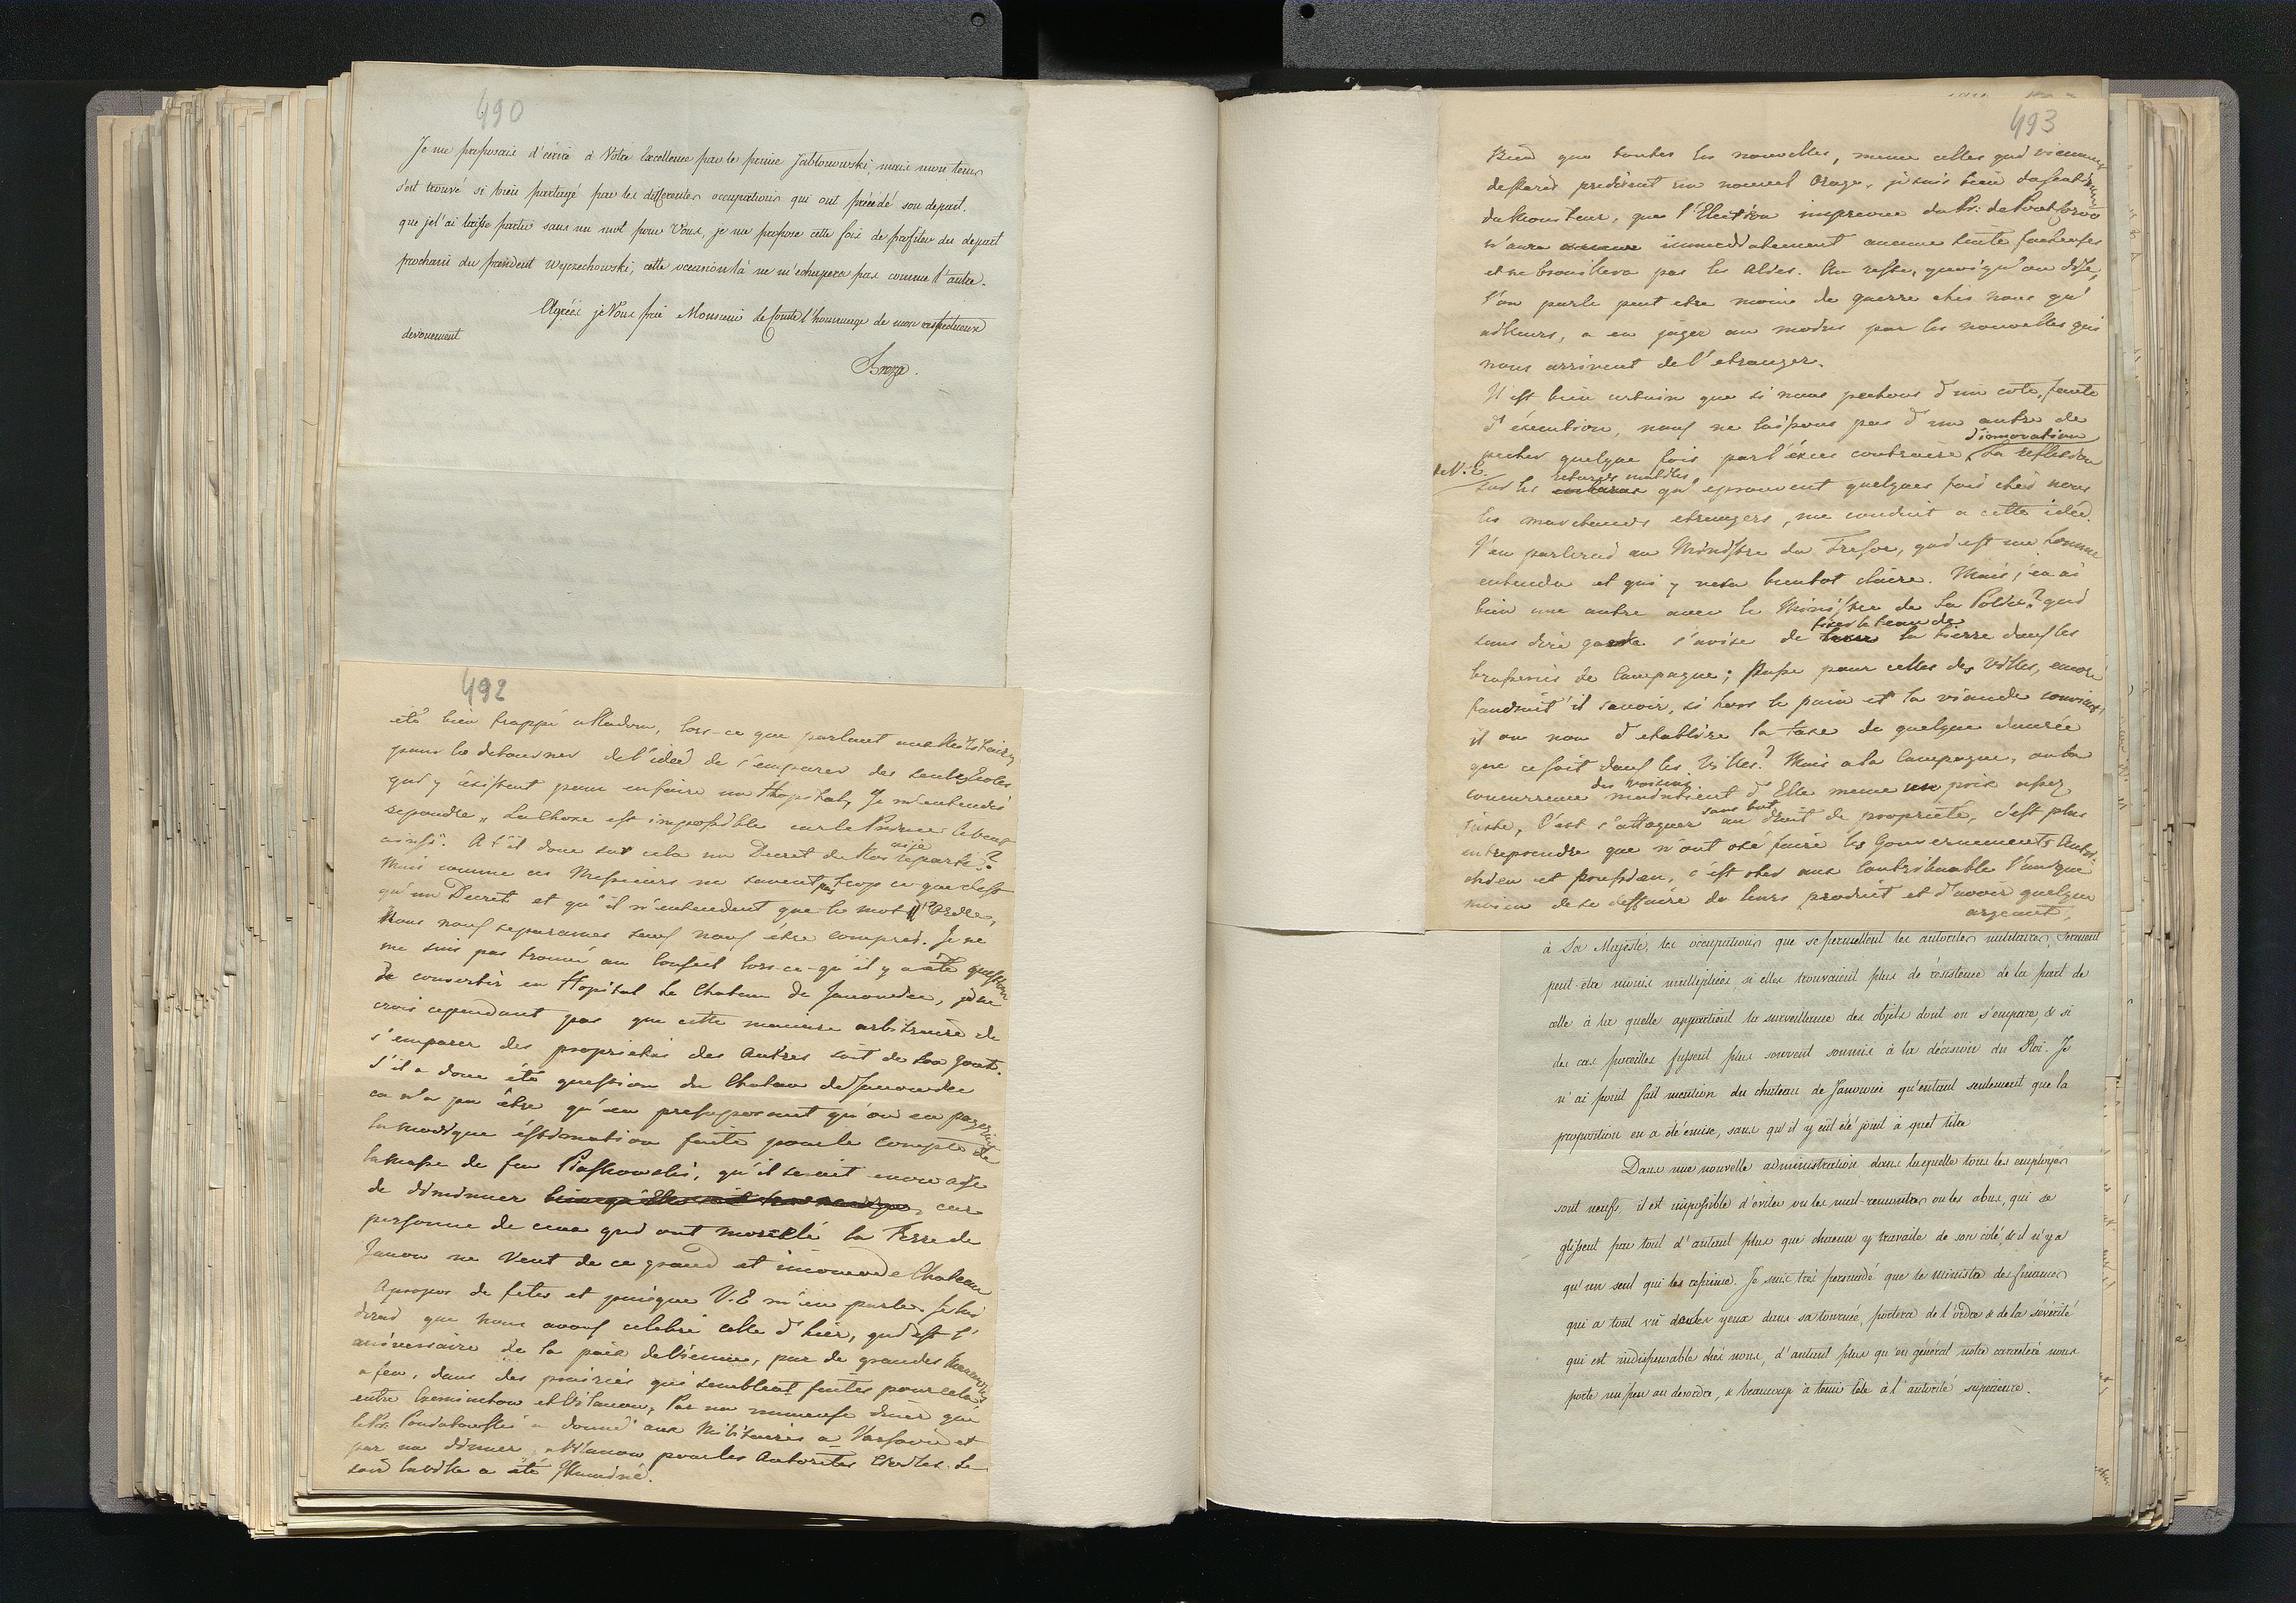 490
Je me proposais d'écrire à Votre Excellence par le prince Jablonowski, mais mon tems
s'est trouvé si bien partagé par les differentes occupations qui ont précédé son depart.
que je l'ai laissé partir sans un mot pour Vous, je me propose cette fois de profiter du depart
prochain du president Wyczechowski, cette occasion là ne m'echapera pas comme l'autre.
Agréez je Vous prie Monsieur le Comte l'hommage de mon respectueux
devouement
Breza.
492
été bien frappé a Radom, lors-ce que parlant aux Militaires
pour les detourner de l'idée de s'emparer des seules Ecoles
qui y existent pour en faire un Hopital, Je m'entendis
repondre „ La chose est impossible car le Prince le veut
ainsi". A t'il donc sur cela un Decret de Roi
Mais comme ces Messieurs ne savent pas trop ce que c'est
qu'un Decret et qu'il n'entendent que le mot d'Ordre,
Nous nous separames sans nous être compris. Je ne
me suis pas trouvé au Conseil lors-ce-qu'il y a été question
de convertir en Hopital le Chateau de Janowiec, je ne
crois cependant pas que cette maniere arbitraire de
s'emparer des proprietés des Autres soit de son gout.
S'il a donc été question du Chateau de Janowiec
ca n'a pu être qu'en presuposant qu'on en payerait
la modique éstimation faite pour le compte de
la Masse de feu Piaskowski, qu'il serait encore aisé
de diminuer car
personne de ceux qui ont morcelé la Terre de
Janow ne Veut de ce grand et incomode Chateau
Apropos de fetes et puisque V.E m'en parle. Je lui
dirai que nous avons celebré celle d'hier, qui est l'
aniversaire de la paix de Vienne, par de grandes Manoeuvres
a feu, dans des prairies qui semblent faites pour cela
entre Czerniakow et Vilanow, Par un immense diner que
le Pr. Poniatowski a donné aux Militaires a Varsovie et
par un dinner a Vilanow pour les Autorités Civiles. Le
soir la ville a été Illuminé.
493
Bien que toutes les nouvelles, meme celles qui viennent
de Paris predisent un nouvel Orage, je suis bien du sentiment
du Moniteur, que l'Election imprevue du Pr: de Pontecorvo
n'aura immediatement aucune suite facheuse
et ne brouillera pas les Aldes. Au reste, quoiqu'on dise,
l'on parle peut etre moins de guerre chez nous qu'
ailleurs, a en juger au moins par les nouvelles qui
nous arrivent de l'etranger.
Il est bien certain que si nous pechons d'un coté, faute
d'éxecution, nous ne laissons pas d'un autre de
d'innovation
pecher quelque fois par l'éxces contraire La reflexion
de V.E.
retards inutiles
sur les embaras qu'eprouvent quelques fois chez nous
les marchands etrangers, me conduit a cette idée.
J'en parlerai au Ministre du Tresor, qui est un homme
entendu et qui y verra bientot claire. Mais, j'en ai
bien une autre avec le Ministre de la Police? qui
fixer le taux de
sans dire garde s'avise de taxer la bierre dans les
brasseries de Campagne; Passe pour celles des Villes, encore
faudrait'il savoir, si hors le pain et la viande convient
il ou non d'etablire la taxe de quelque denrée
que ce soit dans les Villes? Mais a la Campagne, ou la
des voisins
concurrence maintient d'Elle meme un prix assez
sans but
juste, C'est s'attaquer au droit de proprieté, c'est plus
entreprendre que n'ont osé faire les Gouvernements Autri-
chien et prussien, c'est oter aux Contribuable l'unique
moien de se deffaire de leurs produit et d'avoir quelque
argent,
à Sa Majesté, les occupations que se permettent les autorités militaires, seraient
peut-être moins multipliées, si elles trouvaient plus de résistence de la part de
celle à la quelle appartient la surveillance des objets dont on s'empare, & si
des cas pareilles fussent plus souvent soumis à la décision du Roi. Je
n'ai point fait mention du chateau de Janowiec qu'entant seulement que la
proposition en a été émise, sans qu'il y eût été joint à quel titre
Dans une nouvelle administration dans laquelle tous les employés
sont neufs, il est impossible d'eviter ou les mal-rencontres ou les abus, qui se
glissent par tout d'autant plus que chacun y travaille de son coté, & il n'y a
qu'un seul qui les reprime. Je suis très persuadé que le ministre des finances
qui a tout vû de ses yeux dans sa tournée, portera de l'ordre & de la sévérité
qui est indispensable chés nous, d'autant plus qu'en général notre caractère nous
porte un peu au desordre, & beaucoup à tenir tête à l'autorité supérieure.